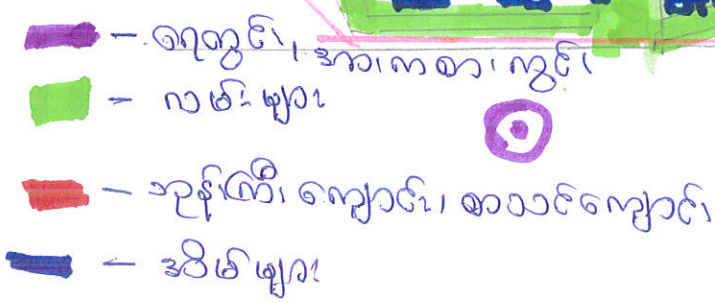 - ရေတွင်း၊ အားကစားကွင်း
- လမ်းများ
- ဘုန်းကြီးကျောင်း၊ စာသင်ကျောင်း
- အိမ်များ